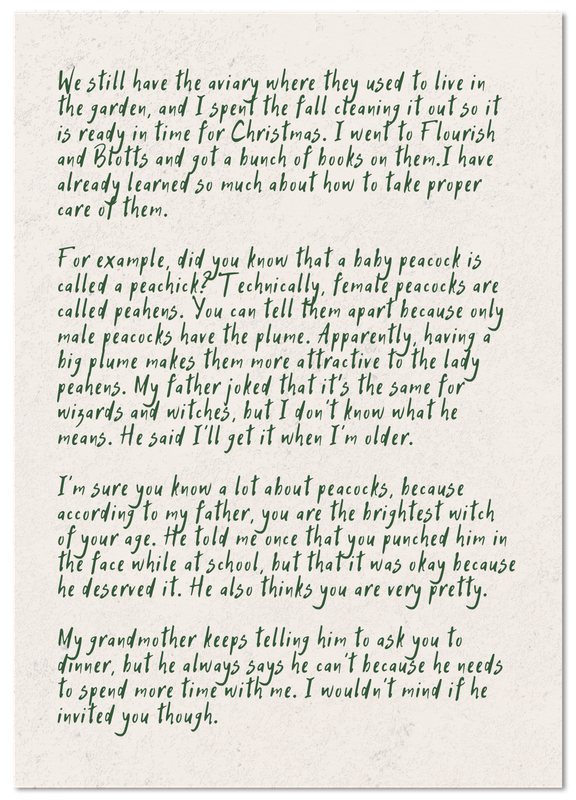 We still have the aviary where they used to live in
the garden, and I spent the fall cleaning it out so it
is ready in time for Christmas. I went to Flourish
and Blotts and got a bunch of books on them.I have
already learned so much about how to take proper
care of them.
For example, did you know that a baby peacock is
called a peachick? Technically, female peacocks are
called peahens. You can tell them apart because only
male peacocks have the plume. Apparently, having a
big plume makes them more attractive to the lady
peahens. My father joked that it's the same for
wizards and witches, but I don't know what he
means. He said I'll get it when I'm older.
I'm sure you know a lot about peacocks, because
according to my father, you are the brightest witch
of your age. He told me once that you punched him in
the face while at school, but that it was okay because
he deserved it. He also thinks you are very pretty.
My grandmother keeps telling him to ask you to
dinner, but he always says he can't because he needs
to spend more time with me. I wouldn't mind if he
invited you though.